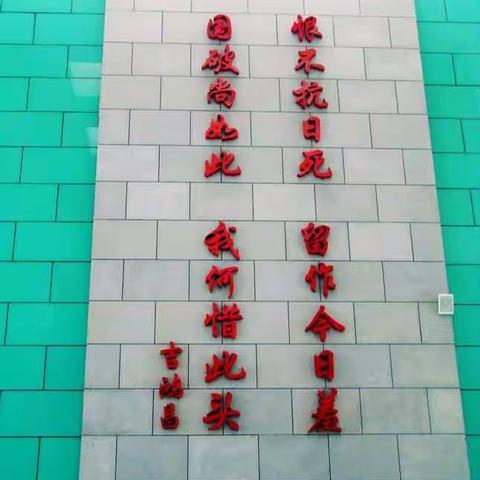 恨不抗日死 留作今日羞
国破尚如此 我何惜此头
吉鸿昌